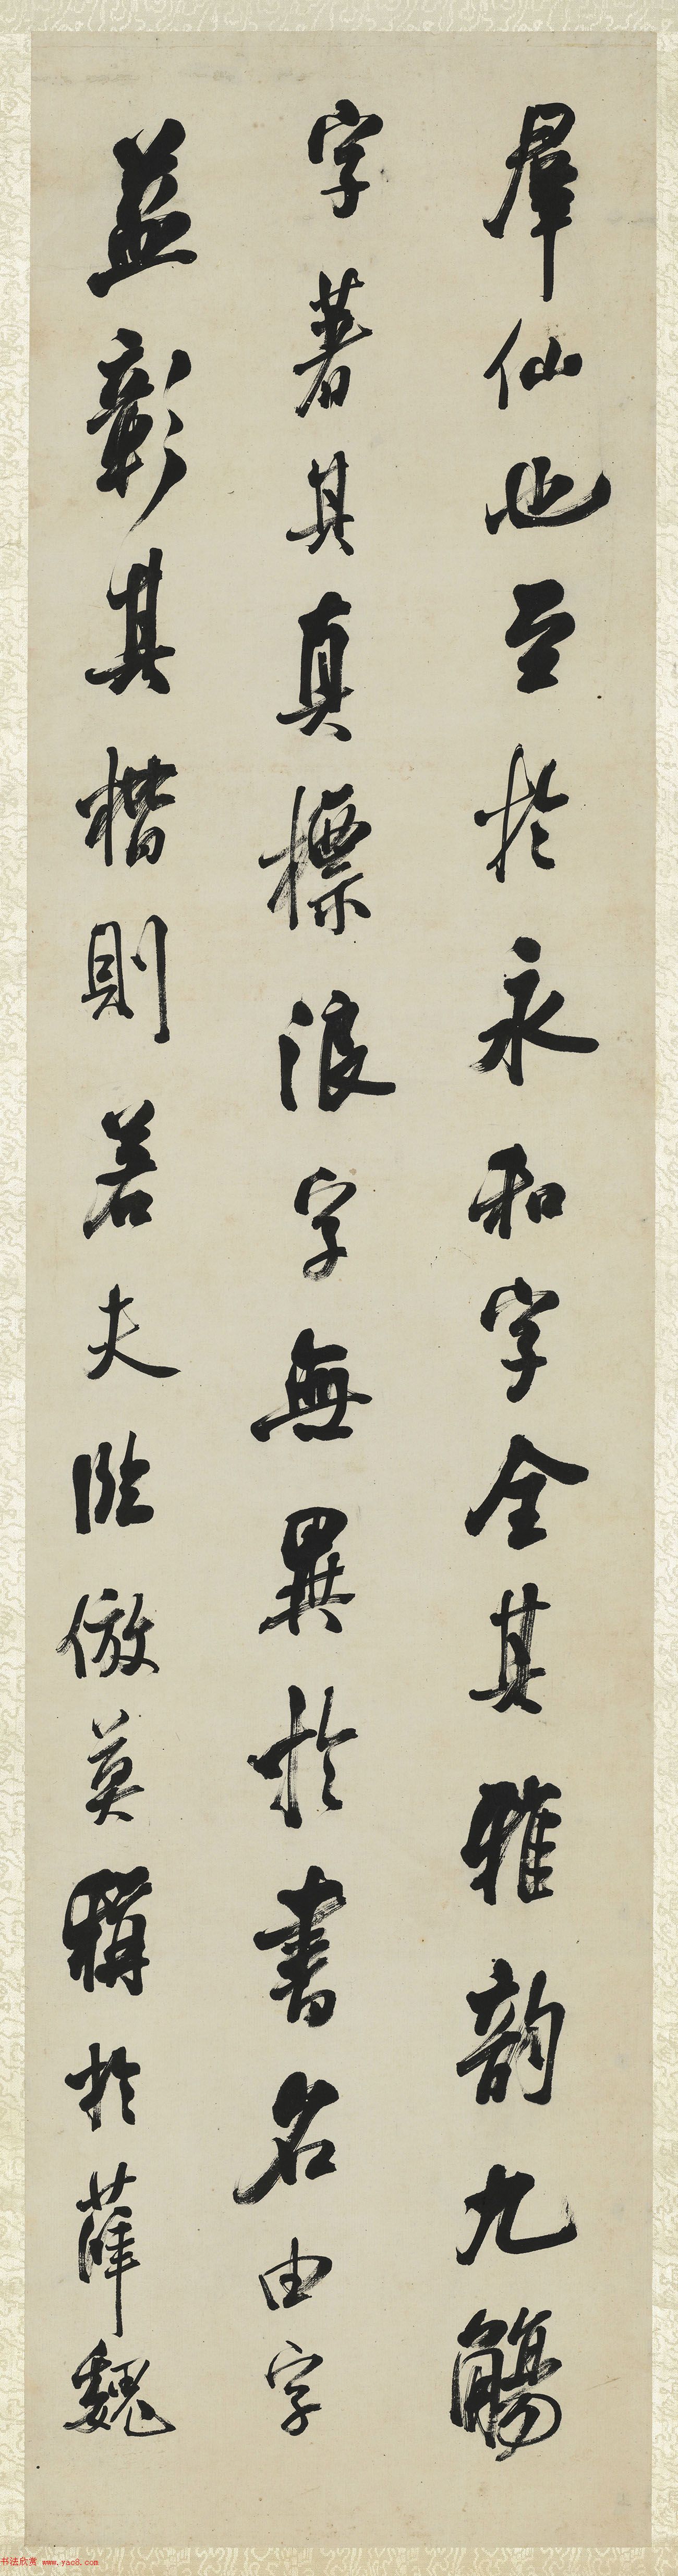 羣仙也至於永和字全其雅韻九觴
字著其真標浪字無異於書名由字
益彰其楷則若夫臨倣莫稱於薛魏
书法欣赏 www.yac8.com